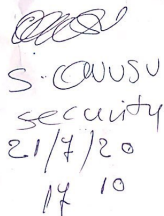 S. Owusu
security
21/7/20
17 10